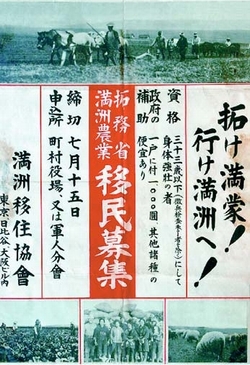 拓け満蒙!
行け満洲へ!
資格
三十三歳以下
にして
身体強壮の者
政府の補助
一戸に付一、〇〇〇圓
其他諸種の
便宜あり
拓務省
満洲農業
移民募集
締切 七月十五日
申込所 町村役場、又は軍人分會
満洲移住協會
東京・日比谷・大阪ビル内